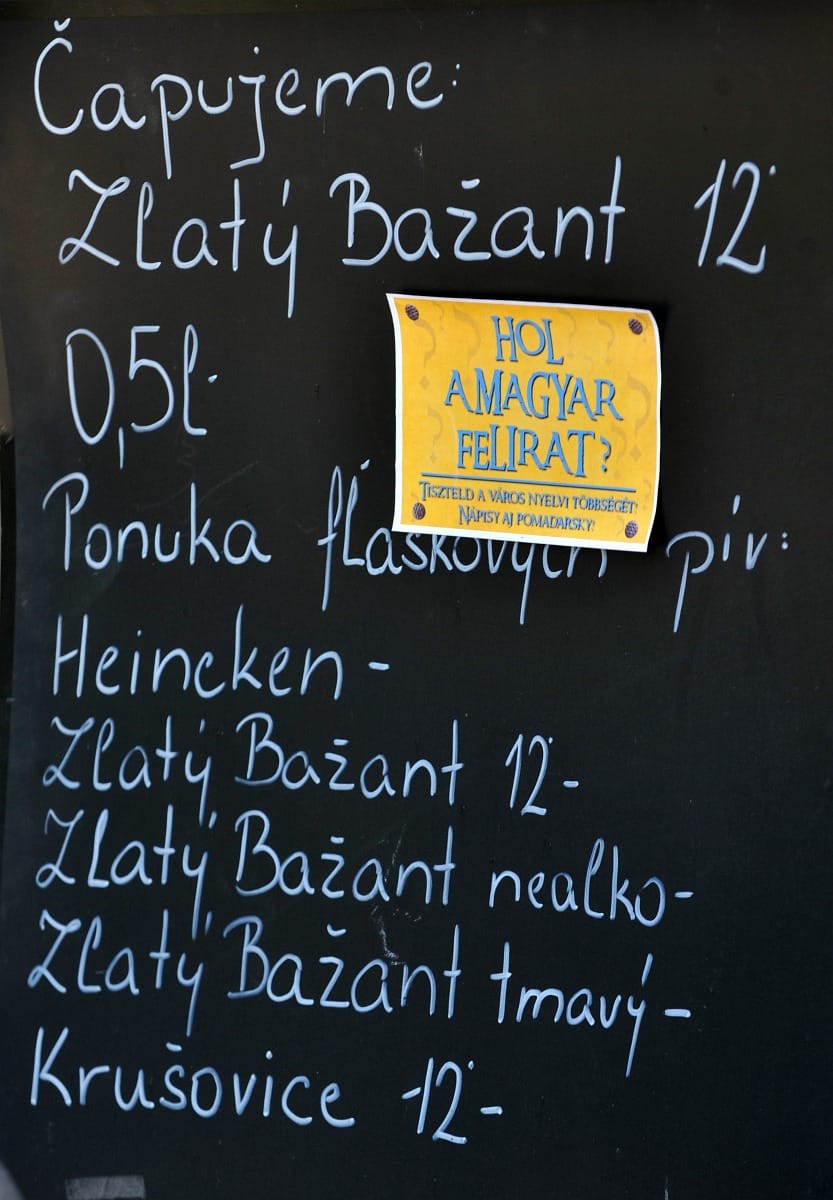 Čapujeme:
Zlatý Bažant 12°
0,5l-
HOL
A MAGYAR
FELIRAT?
TISZTELD A VÁROS NYELVI TÖBBSÉGÉT!
NÁPISY AJ POMAĎARSKY!
Ponuka fľaškových pív:
Heineken -
Zlatý Bažant 12°-
Zlatý Bažant nealko-
Zlatý Bažant tmavý-
Krušovice 12°-